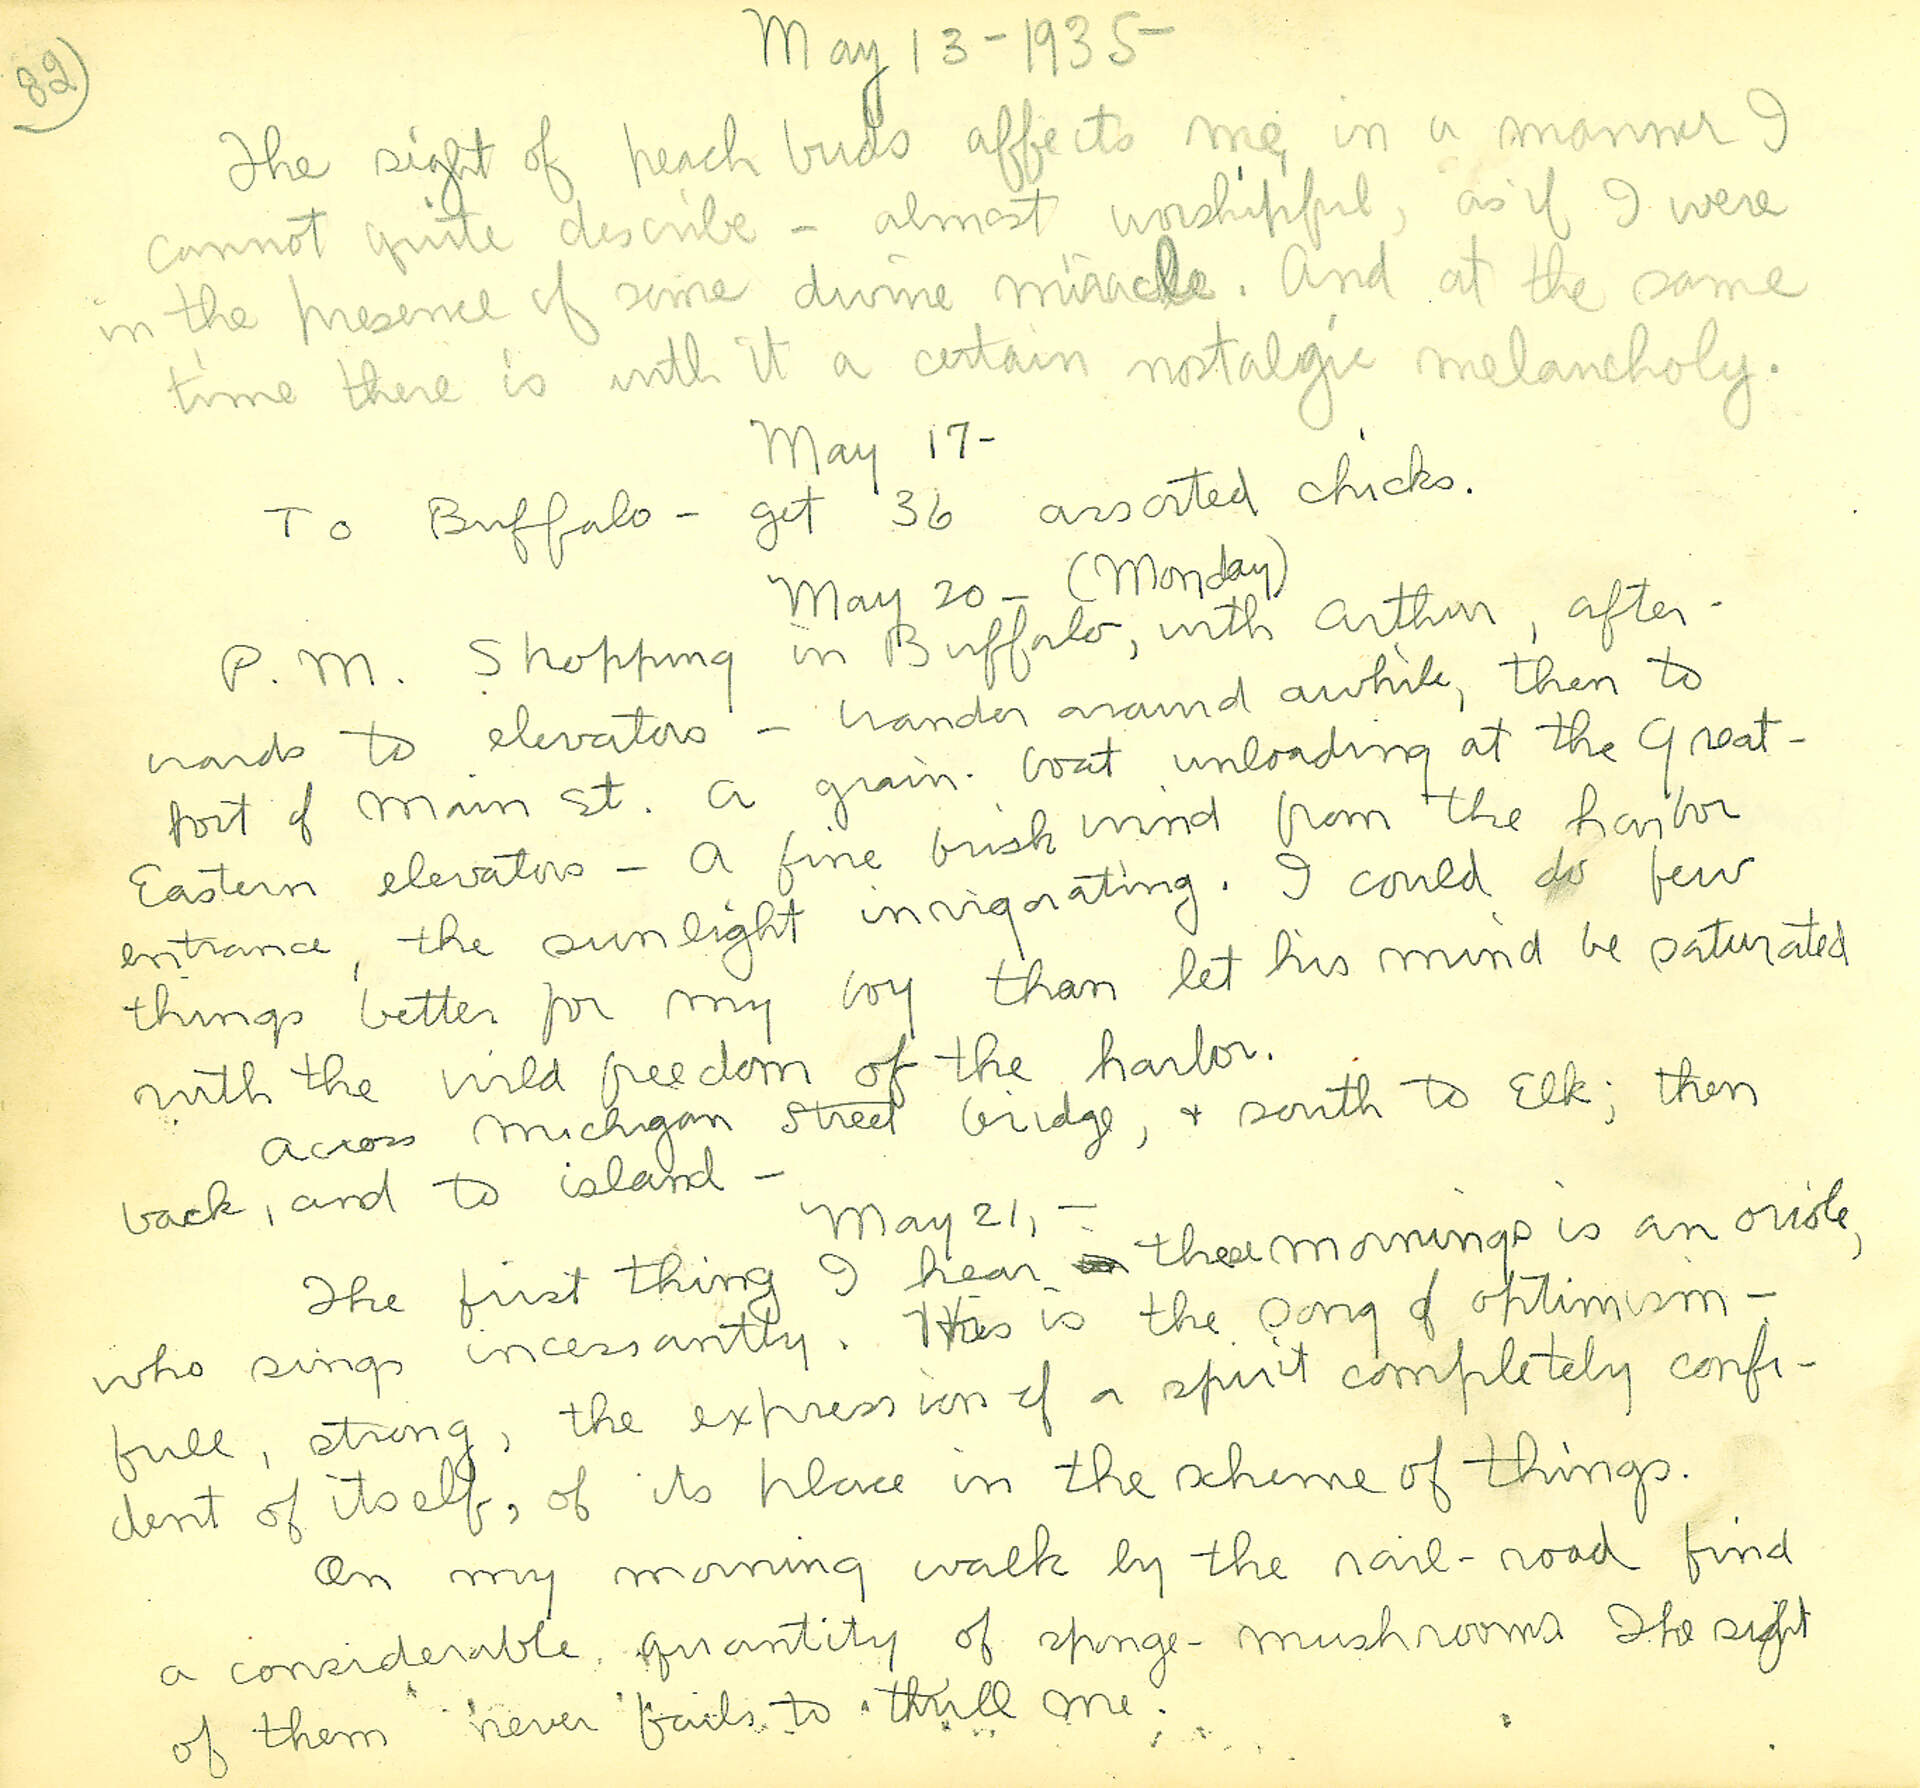 82
May 13-1935-
The sight of peach buds affects me, in a manner I
cannot quite describe - almost worshipful, as if I were
in the presence of some divine miracle. And at the same
time there is with it a certain nostalgic melancholy.
May 17-
To Buffalo - get 36 assorted chicks.
May 20- (Monday)
P.M. Shopping in Buffalo, with Arthur, after-
wards to elevators - wander around awhile, then to
foot of Main St. A grain-boat unloading at the Great-
Eastern elevators - A fine brisk wind from the harbor
entrance, the sunlight invigorating. I could do few
things better for my boy than let his mind be saturated
with the wild freedom of the harbor.
Across Michigan Street bridge, + south to Elk; then
back, and to island -
May 21, -
The first thing I hear these mornings is an oriole,
who sings incessantly. His is the song of optimism -
full, strong, the expression of a spirit completely confi-
dent of itself, of its place in the scheme of things.
On my morning walk by the rail-road find
a considerable quantity of sponge-mushrooms The sight
of them never fails to thrill me.